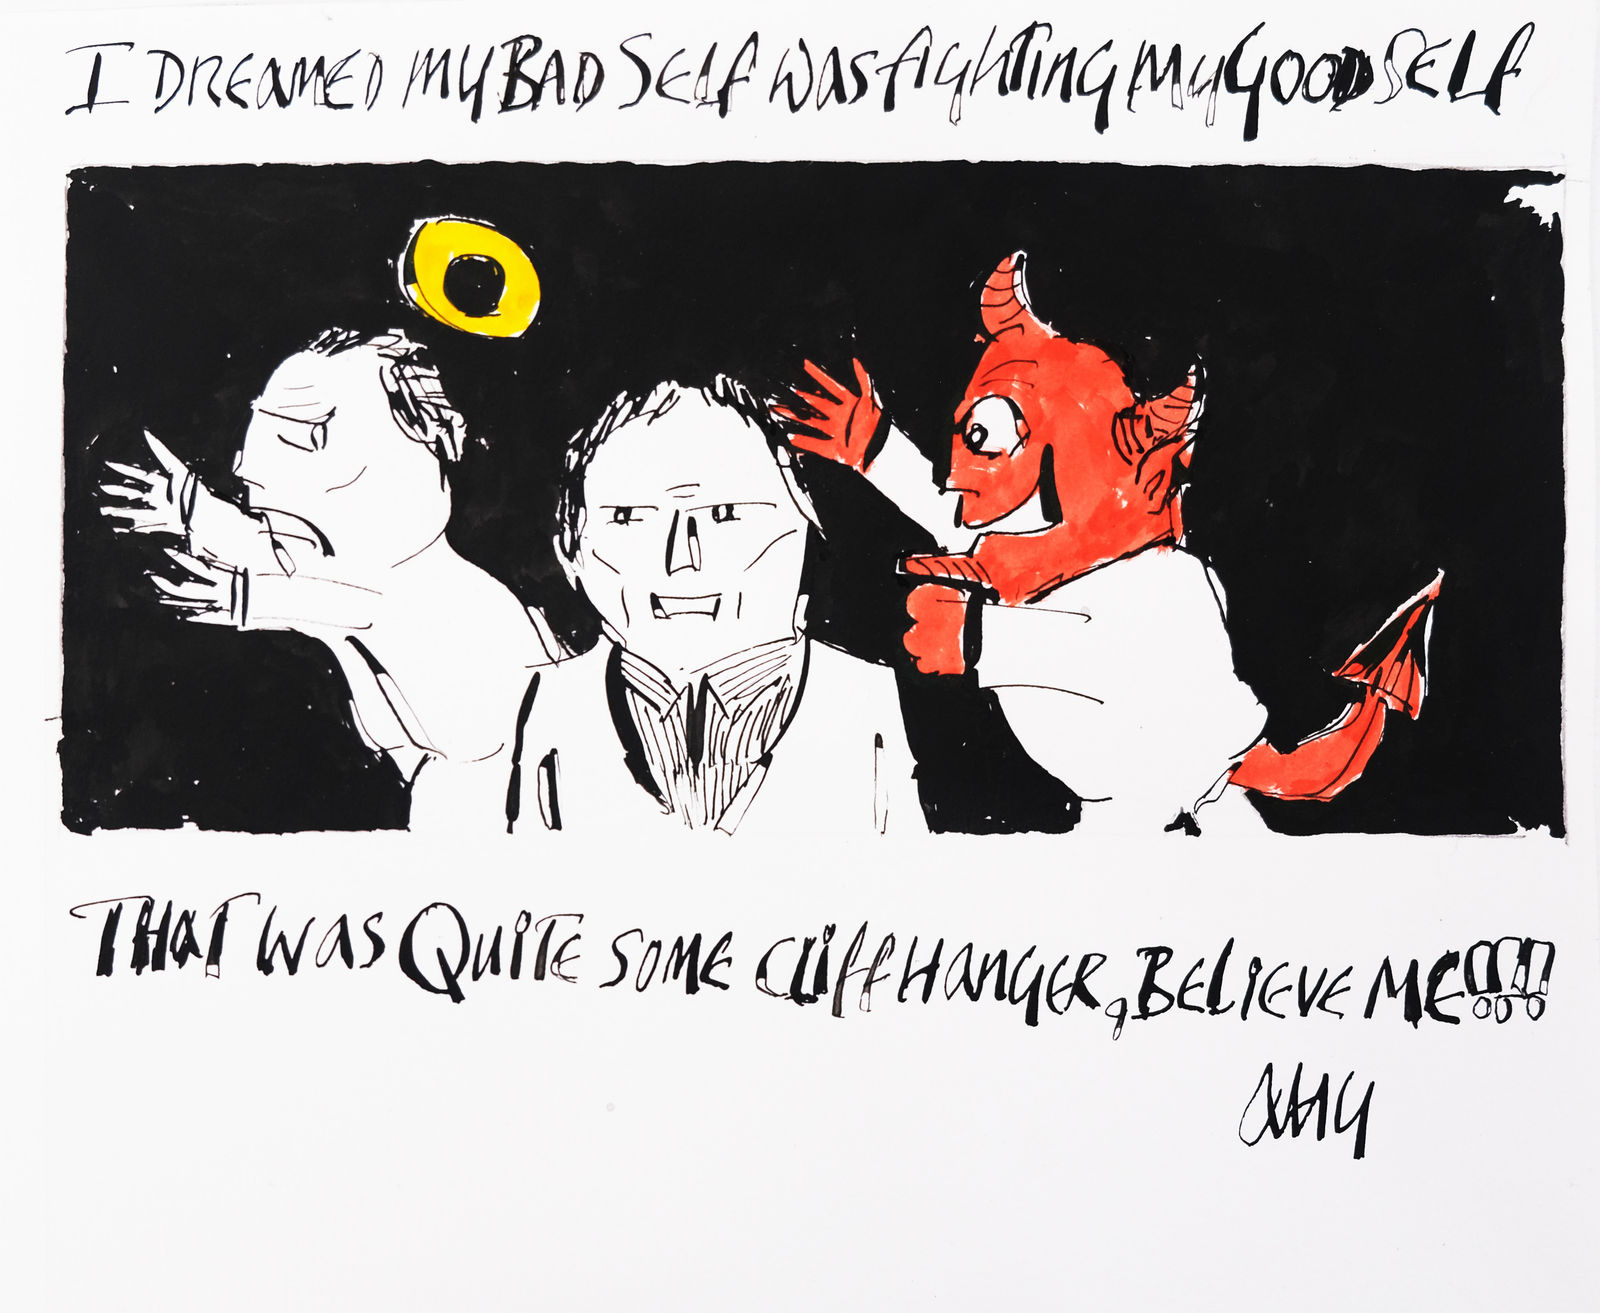 I DREAMED MY BAD SELF WAS FIGHTING MY GOOD SELF
THAT WAS QUITE SOME CLIFFHANGER, BELIEVE ME!!!